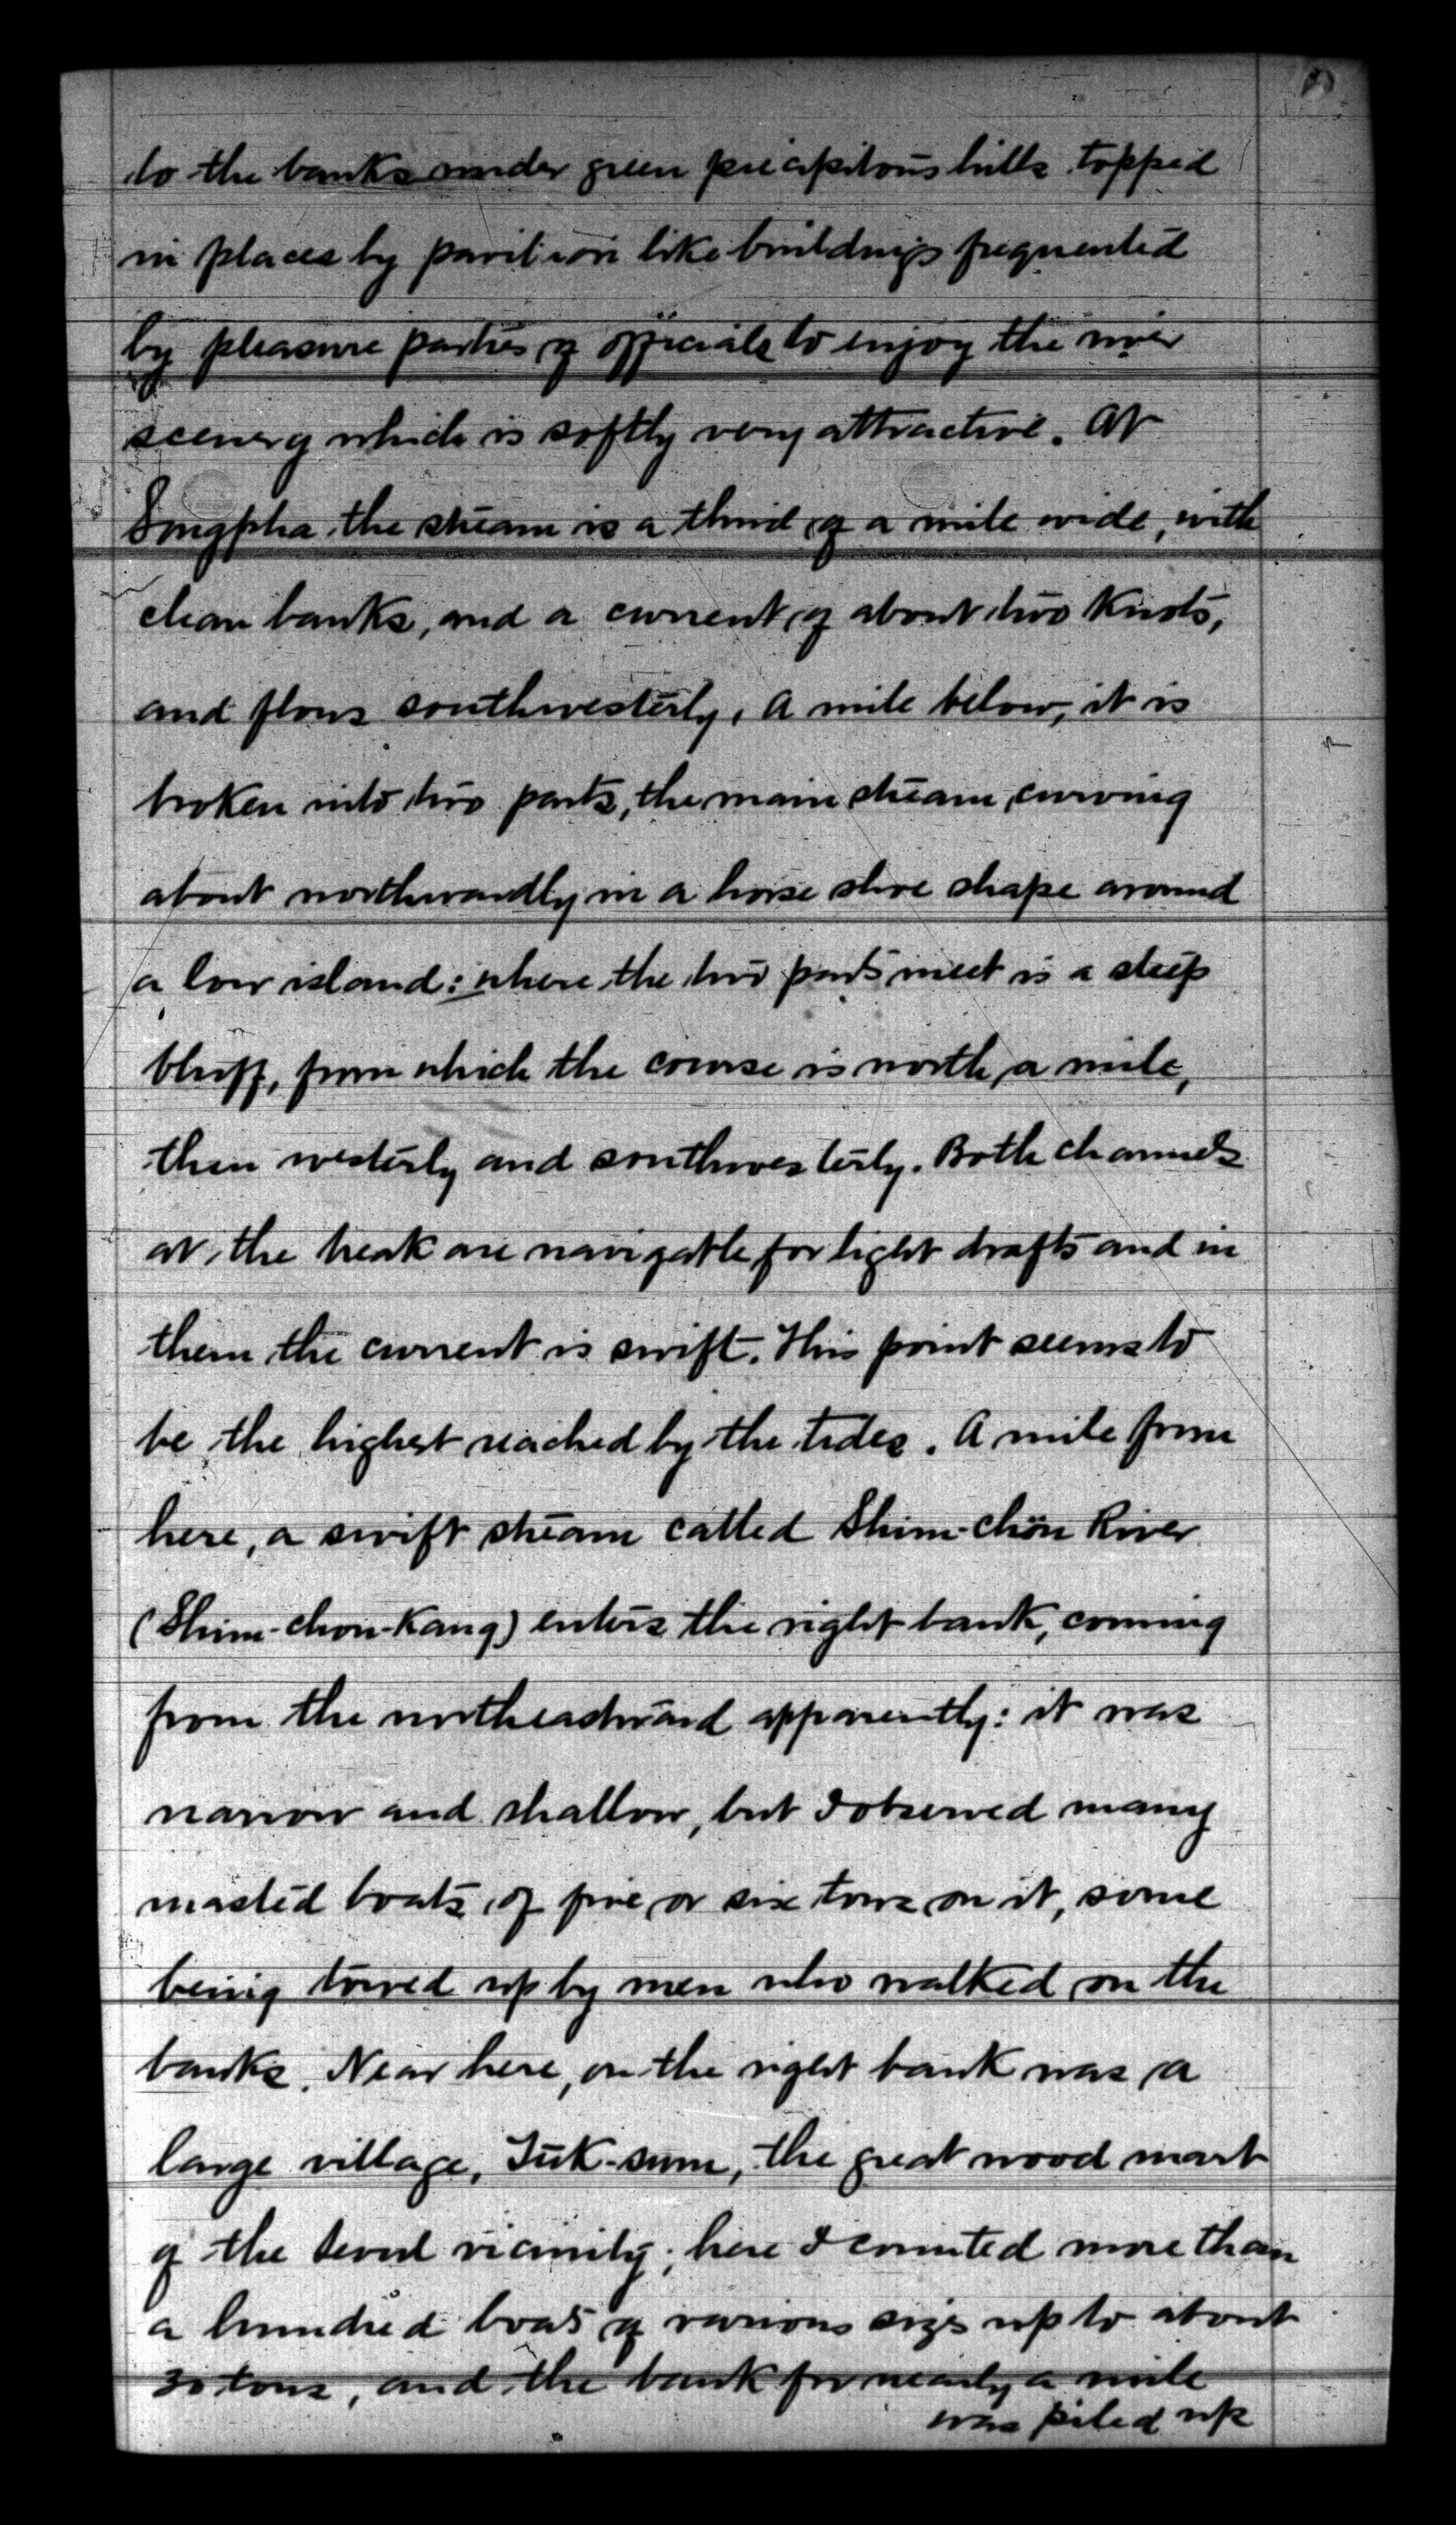 to the banks under green precipitous hills topped
in places by pavilion like buildings frequented
by pleasure parties of officials to enjoy the river
scenery which is softly very attractive. At
Songpha the stream is a third of a mile wide, with
clean banks, and a current of about two Knots,
and flows southwesterly. A mile below, it is
broken into two parts, the main stream curving
about northwardly in a horse shoe shape around
a low island: where the two parts meet is a steep
bluff, from which the course is north a mile,
then westerly and southwesterly. Both channels
at the break are navigable for light drafts and in
them the current is swift. This point seems to
be the highest reached by the tides. A mile from
here, a swift stream called Shim-chön River
(Shim-chon-Kang) enters the right bank, coming
from the northeastward apparently: it was
narrow and shallow, but I observed many
masted boats of five or six tons on it, some
being towed up by men who walked on the
banks. Near here, on the right bank was a
large village, Tuk-sum, the great wood mart
of the Seoul vicinity; here I counted more than
a hundred boats of various sizes up to about
30 tons, and the bank for nearly a mile
was piled up